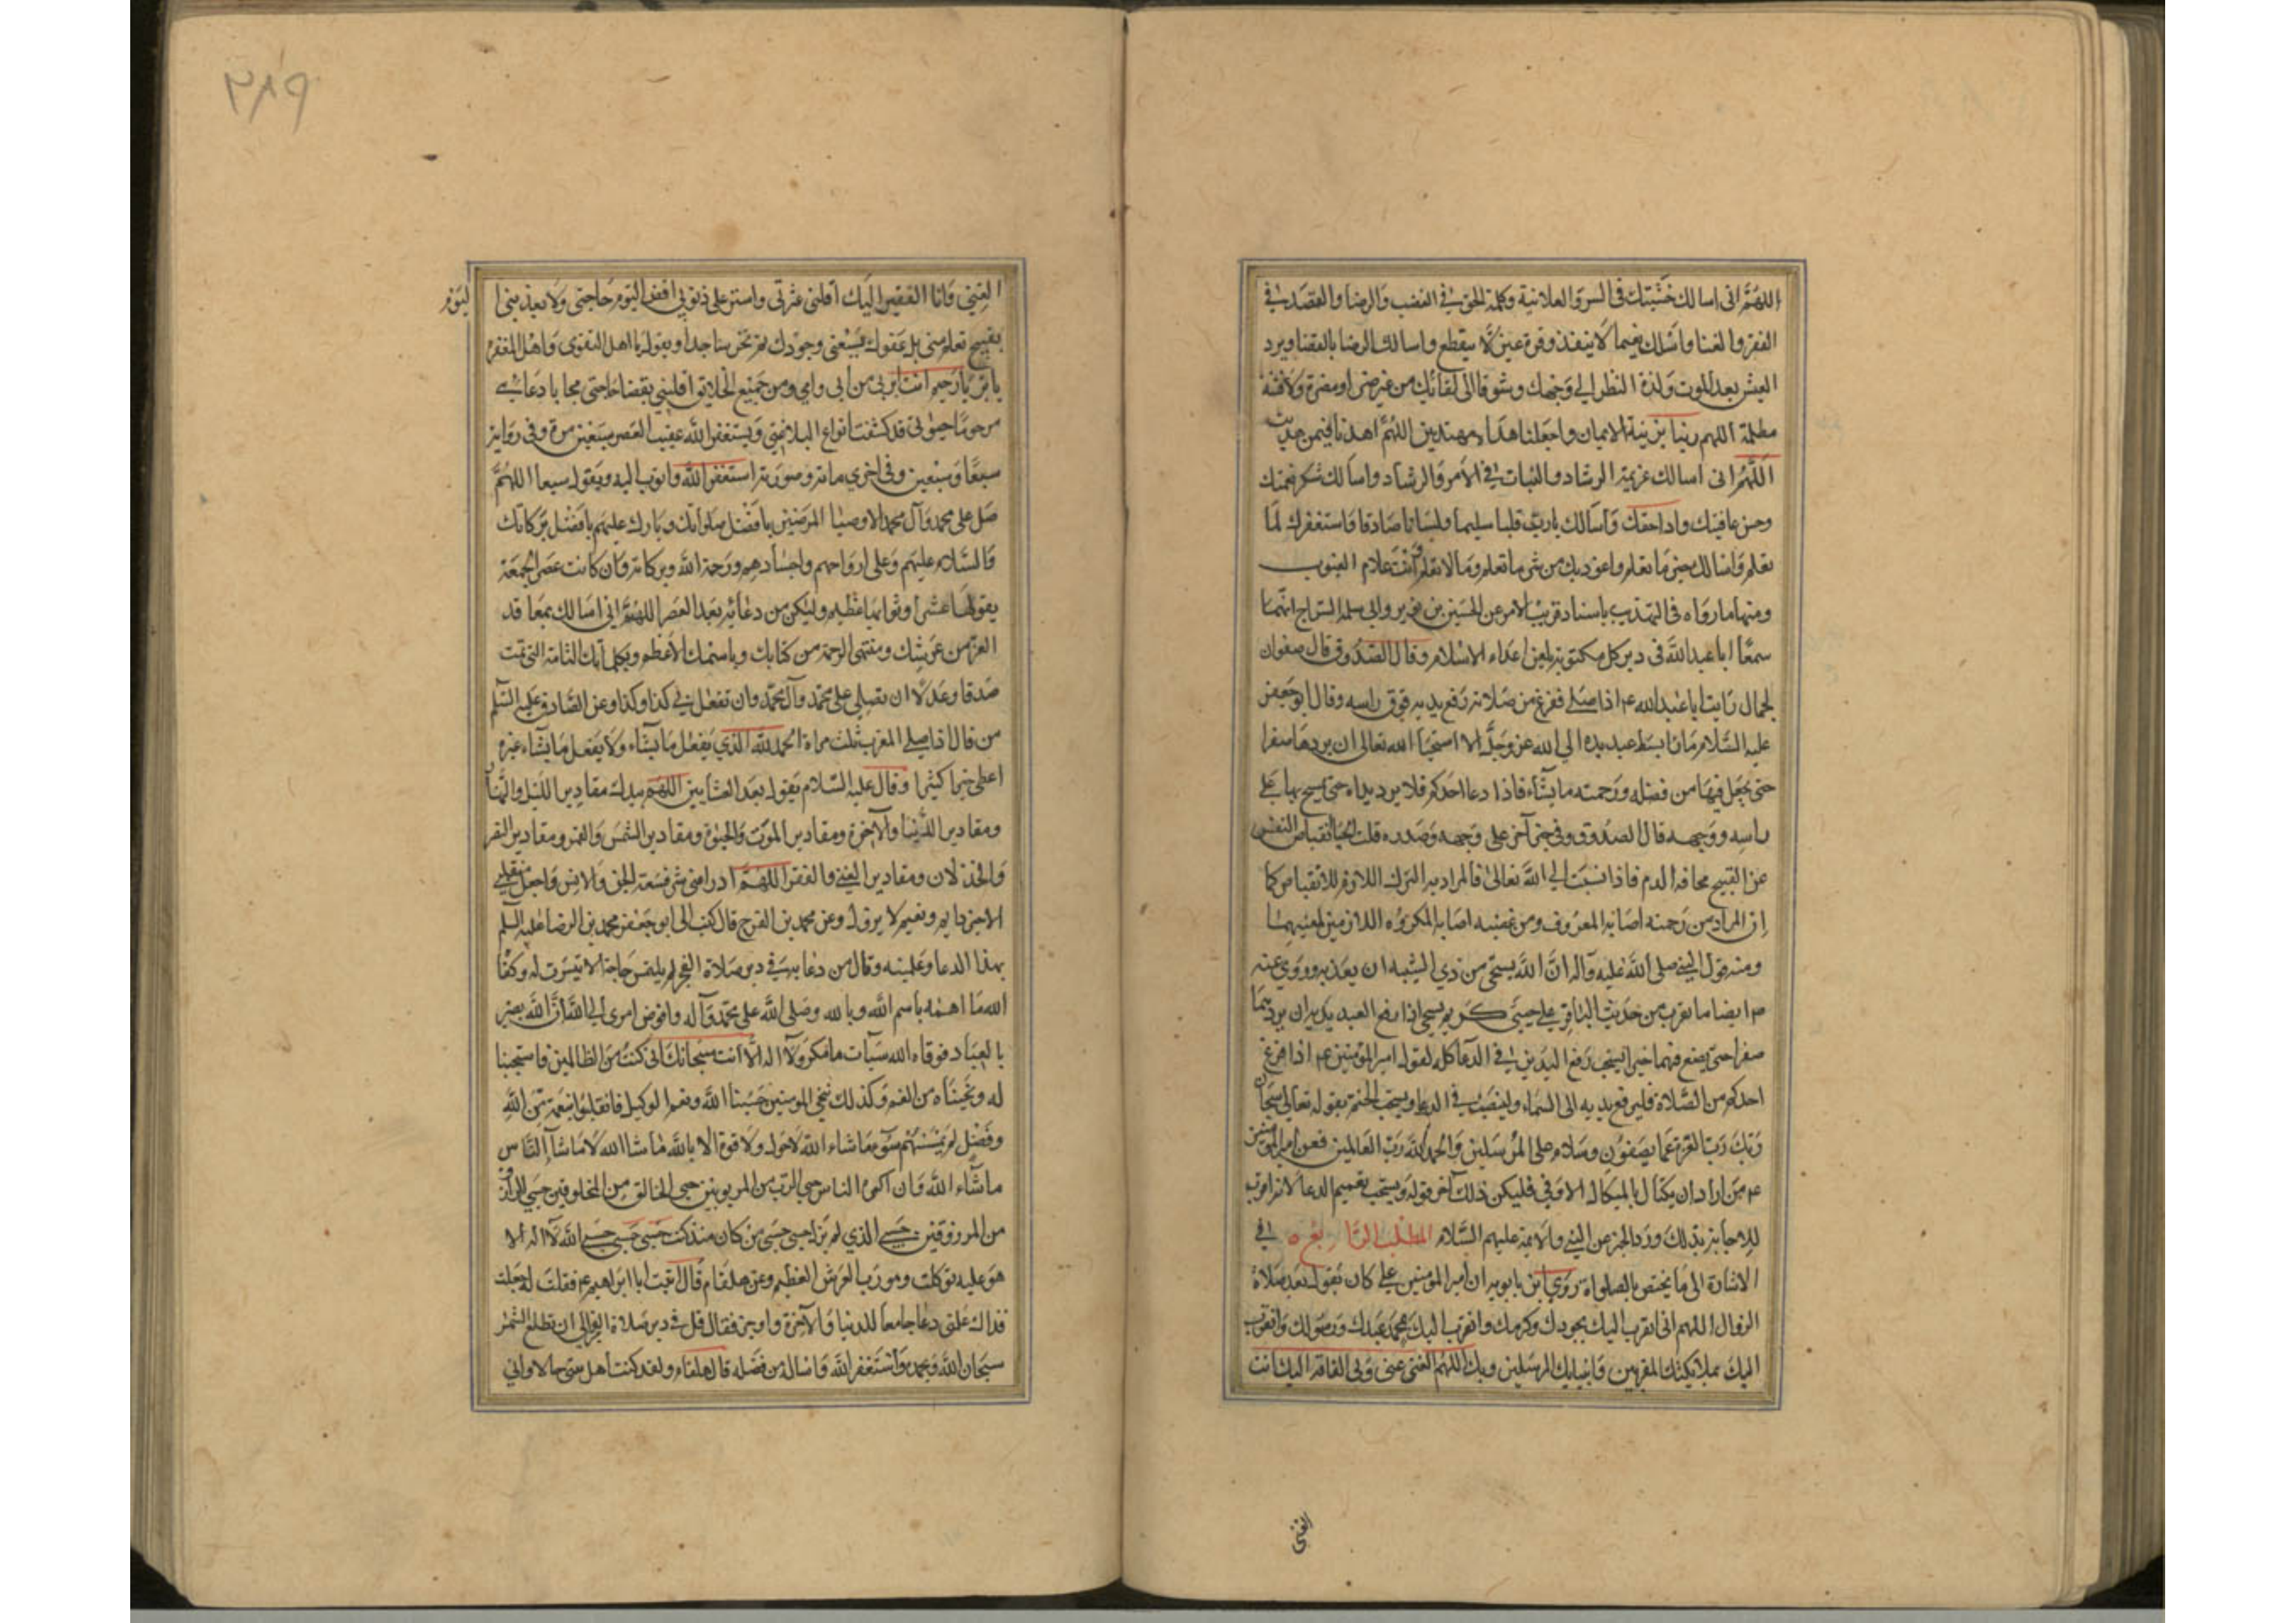 اللهم انى اسالك خشيتك فى السر والعلانية وكلمة الحق فى الغضب والرضا والقصد فى
الفقر والغنا واسئلك نعيما لا ينفذ وقرة عين لا ينقطع واسالك الرضا بالقضا وبرد
العيش بعد الموت ولذة النظر الى وجهك وشوقا الى لقائك من غير ضراء مضرة ولا فتنة
مظلمة اللهم زينا بزينة الايمان واجعلنا هداة مهتدين اللهم اهدنا فيمن هديت
اللهم انى اسالك عزيمة الرشاد والثبات فى الامر والرشاد واسالك شكر نعمتك
وحسن عافيتك واداء حقك واسالك يارب قلبا سليما ولسانا صادقا واستغفرك لما
تعلم واسالك خير ما تعلم واعوذ بك من شر ما تعلم وما لا نعلم وانت علام الغيوب
ومنها ما رواه فى التهذيب باسناد قريب الامر عن الحسين بن ثوير وابى سلمه السراج انهما
سمعا ابا عبد الله فى دبر كل مكتوبة يلعن اعداء الاسلام وقال الصدوق قال صفوان
الجمال رايت ابا عبد الله ع اذا صلى ففرغ من صلاته رفع يديه فوق راسه وقال ابو جعفر
عليه السلام ما بسط عبد يده الى الله عز وجل الا استحيا الله تعالى ان يردها صفرا
حتى يجعل فيها من فضله ورحمته ما يشاء فاذا دعا احدكم فلا يرد يداه حتى يمسح بها على
راسه ووجهه قال الصدوق وفى خبر آخر على وجهه وصدره قلت الحيا انقباض النفس
عن القبيح مخافة الذم فاذا نسبت الى الله تعالى فالمراد به الترك اللازم للانقباض كما
ان المراد من رحمته اصابة المعروف ومن غضبه اصابة المكروه اللازمين لمعنييهما
ومنه قول النبى صلى الله عليه وآله ان الله يستحى من ذي الشيبه ان يعذبه وروى عنه
ص ايضا ما يقرب من حديث الباقر ع حيي كريم يستحى اذا رفع العبد يديه ان يردهما
صفرا حتى يضع فيهما خيرا يستحب رفع اليدين فى الدعا كله لقول امير المؤمنين ع اذا فرغ
احدكم من الصلاة فليرفع يديه الى السماء ولينصب فى الدعا ويستحب الختم بقوله تعالى سبحان
ربك رب العزة عما يصفون وسلام على المرسلين والحمد لله رب العالمين فعن امير المؤمنين
ع من اراد ان يكتال بالمكيال الاوفى فليكن ذلك آخر قوله ويستحب تعميم الدعا لانه اقرب
للاجابة بذلك ورد الخبر عن النبى والائمة عليهم السلام المطلب الرابع فى
الاشارة الى ما يختص بالصلواة روي ابن بابويه ان امير المؤمنين ع كان يقول بعد صلاة
الزوال اللهم انى اتقرب اليك بجودك وكرمك واتقرب اليك بمحمد عبدك ورسولك واتقرب
اليك بملائكتك المقربين وانبيائك المرسلين وبك اللهم الغنى عنى وبى الفاقة اليك انت
الغنى
٢٨٩
الغنى وانا الفقير اليك اقلنى عثرتى واستر على ذنوبى اقض اليوم حاجتى ولا تعذبنى
اليوم
بقبيح تعلم منى بل عفوك يسعنى وجودك ثم تخر ساجدا وتقول يا اهل التقوى واهل المغفرة
يا بر يا رحيم انت ابر بى من ابى وامى ومن جميع الخلائق اقلبنى بقضا حاجتى مجابا دعائى
مرحوما صوتى قد كشفت انواع البلا عنى ويستغفر الله عقيب العصر سبعين مرة وفى رواية
سبعا وسبعين وفى اخرى مائة وصورته استغفر الله واتوب اليه ويقول سبعا اللهم
صل على محمد وآل محمد الاوصيا المرضيين بافضل صلواتك وبارك عليهم بافضل بركاتك
والسلام عليهم وعلى ارواحهم واجسادهم ورحمة الله وبركاته وان كانت عصر الجمعة
يقولها عشرا وثوابها عظيم وليكن من دعائه بعد العصر اللهم انى اسالك بمعاقد
العز من عرشك ومنتهى الرحمة من كتابك وباسمك الاعظم وبكلماتك التامة التى تمت
صدقا وعدلا ان تصلى على محمد وآل محمد وان تفعل بى كذا وكذا وعن الصادق عليه السلم
من قال اذا صلى المغرب ثلث مراة الحمد لله الذي يفعل ما يشاء ولا يفعل ما يشاء غيره
اعطى خيرا كثيرا وقال عليه السلام يقول بعد العشايين اللهم بيدك مقادير الليل والنهار
ومقادير الدنيا والآخرة ومقادير الموت والحيوة ومقادير الشمس والقمر ومقادير النصر
والخذلان ومقادير الغنى والفقر اللهم ادرا عنى شر فسقة الجن والانس واجعل منقلبى
الى خير دايم ونعيم لا يزول وعن محمد بن الفرج قال كتب الى ابو جعفر محمد بن الرضا عليه السلم
بهذا الدعا وعلمنيه وقال من دعا به فى دبر صلاة الفجر لم يلتمس حاجة الا تيسرت له وكفاه
الله ما اهمه باسم الله وبالله وصلى الله على محمد وآله وافوض امرى الى الله ان الله بصير
بالعباد فوقاه الله سيات ما مكروا لا اله الا انت سبحانك انى كنت من الظالمين فاستجبنا
له ونجيناه من الغم وكذلك ننجى المومنين حسبنا الله ونعم الوكيل فانقلبوا بنعمة من الله
وفضل لم يمسسهم سوء ما شاء الله لا حول ولا قوة الا بالله ما شا الله لا ما شا الناس
ما شاء الله وان كره الناس حسبى الرب من المربوبين حسبى الخالق من المخلوقين حسبى الرازق
من المرزوقين حسبى الذي لم يزل حسبى حسبى من كان منذ كنت حسبى حسبى حسبى الله لا اله الا
هو عليه توكلت وهو رب العرش العظيم وعن هلقام قال اتيت ابا ابراهيم ع فقلت له جعلت
فداك علمنى دعا جامعا للدنيا والآخرة واوجز فقال قل فى دبر صلاة الفجر الى ان تطلع الشمس
سبحان الله وبحمده واستغفر الله واساله من فضله قال هلقام ولقد كنت اهل بيتى حالا وانى